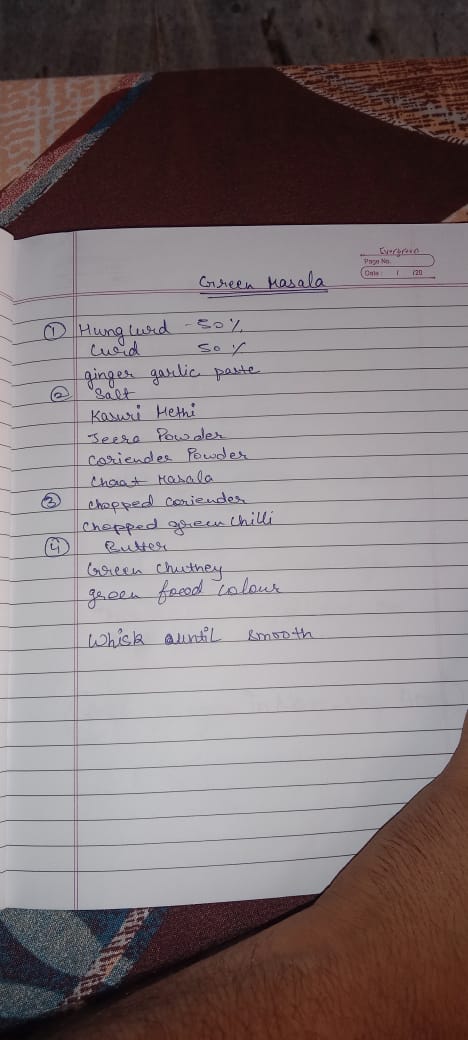 Evergreen
Page No.
Date : / /20
Green Masala
① Hung Curd - 50%
Curd 50%
ginger garlic paste
② Salt
Kasuri Methi
Jeera Powder
Coriender Powder
Chaat Masala
③ chopped coriender
Chopped green chilli
④ Butter
Green Chutney
green foood colour
Whisk auntil smooth